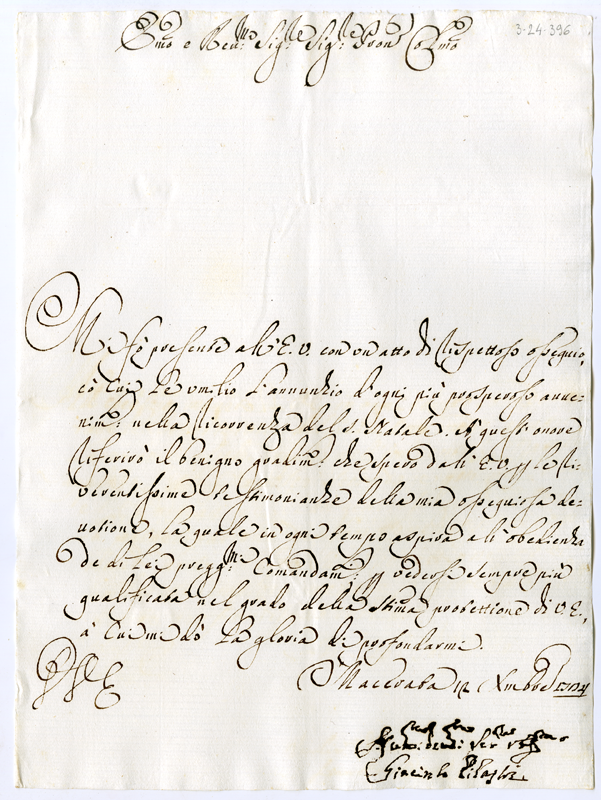 3-24-396
Emo e Revmo Sigre Sigre Pron Colmo
Mi fò presente all' E. V. con un atto di rispettoso ossequio,
cò cui Le umilio l'annunzio d'ogni più prosperoso avve=
nimto nella ricorrenza del S. Natale. A questi onore
riferirò il benigno gradimto che spero dall' E. V. le ri=
verentissime testimonianze della mia ossequiosa de=
votione, la quale in ogni tempo aspira all' obedienza
de di Lei pregmi Comandamti vederse sempre più
qualificata nel grado della stima protettione di V. E.,
à cui mi dò la gloria di profondarmi.
Macerata 12 Xmbre 1724
Giacinto